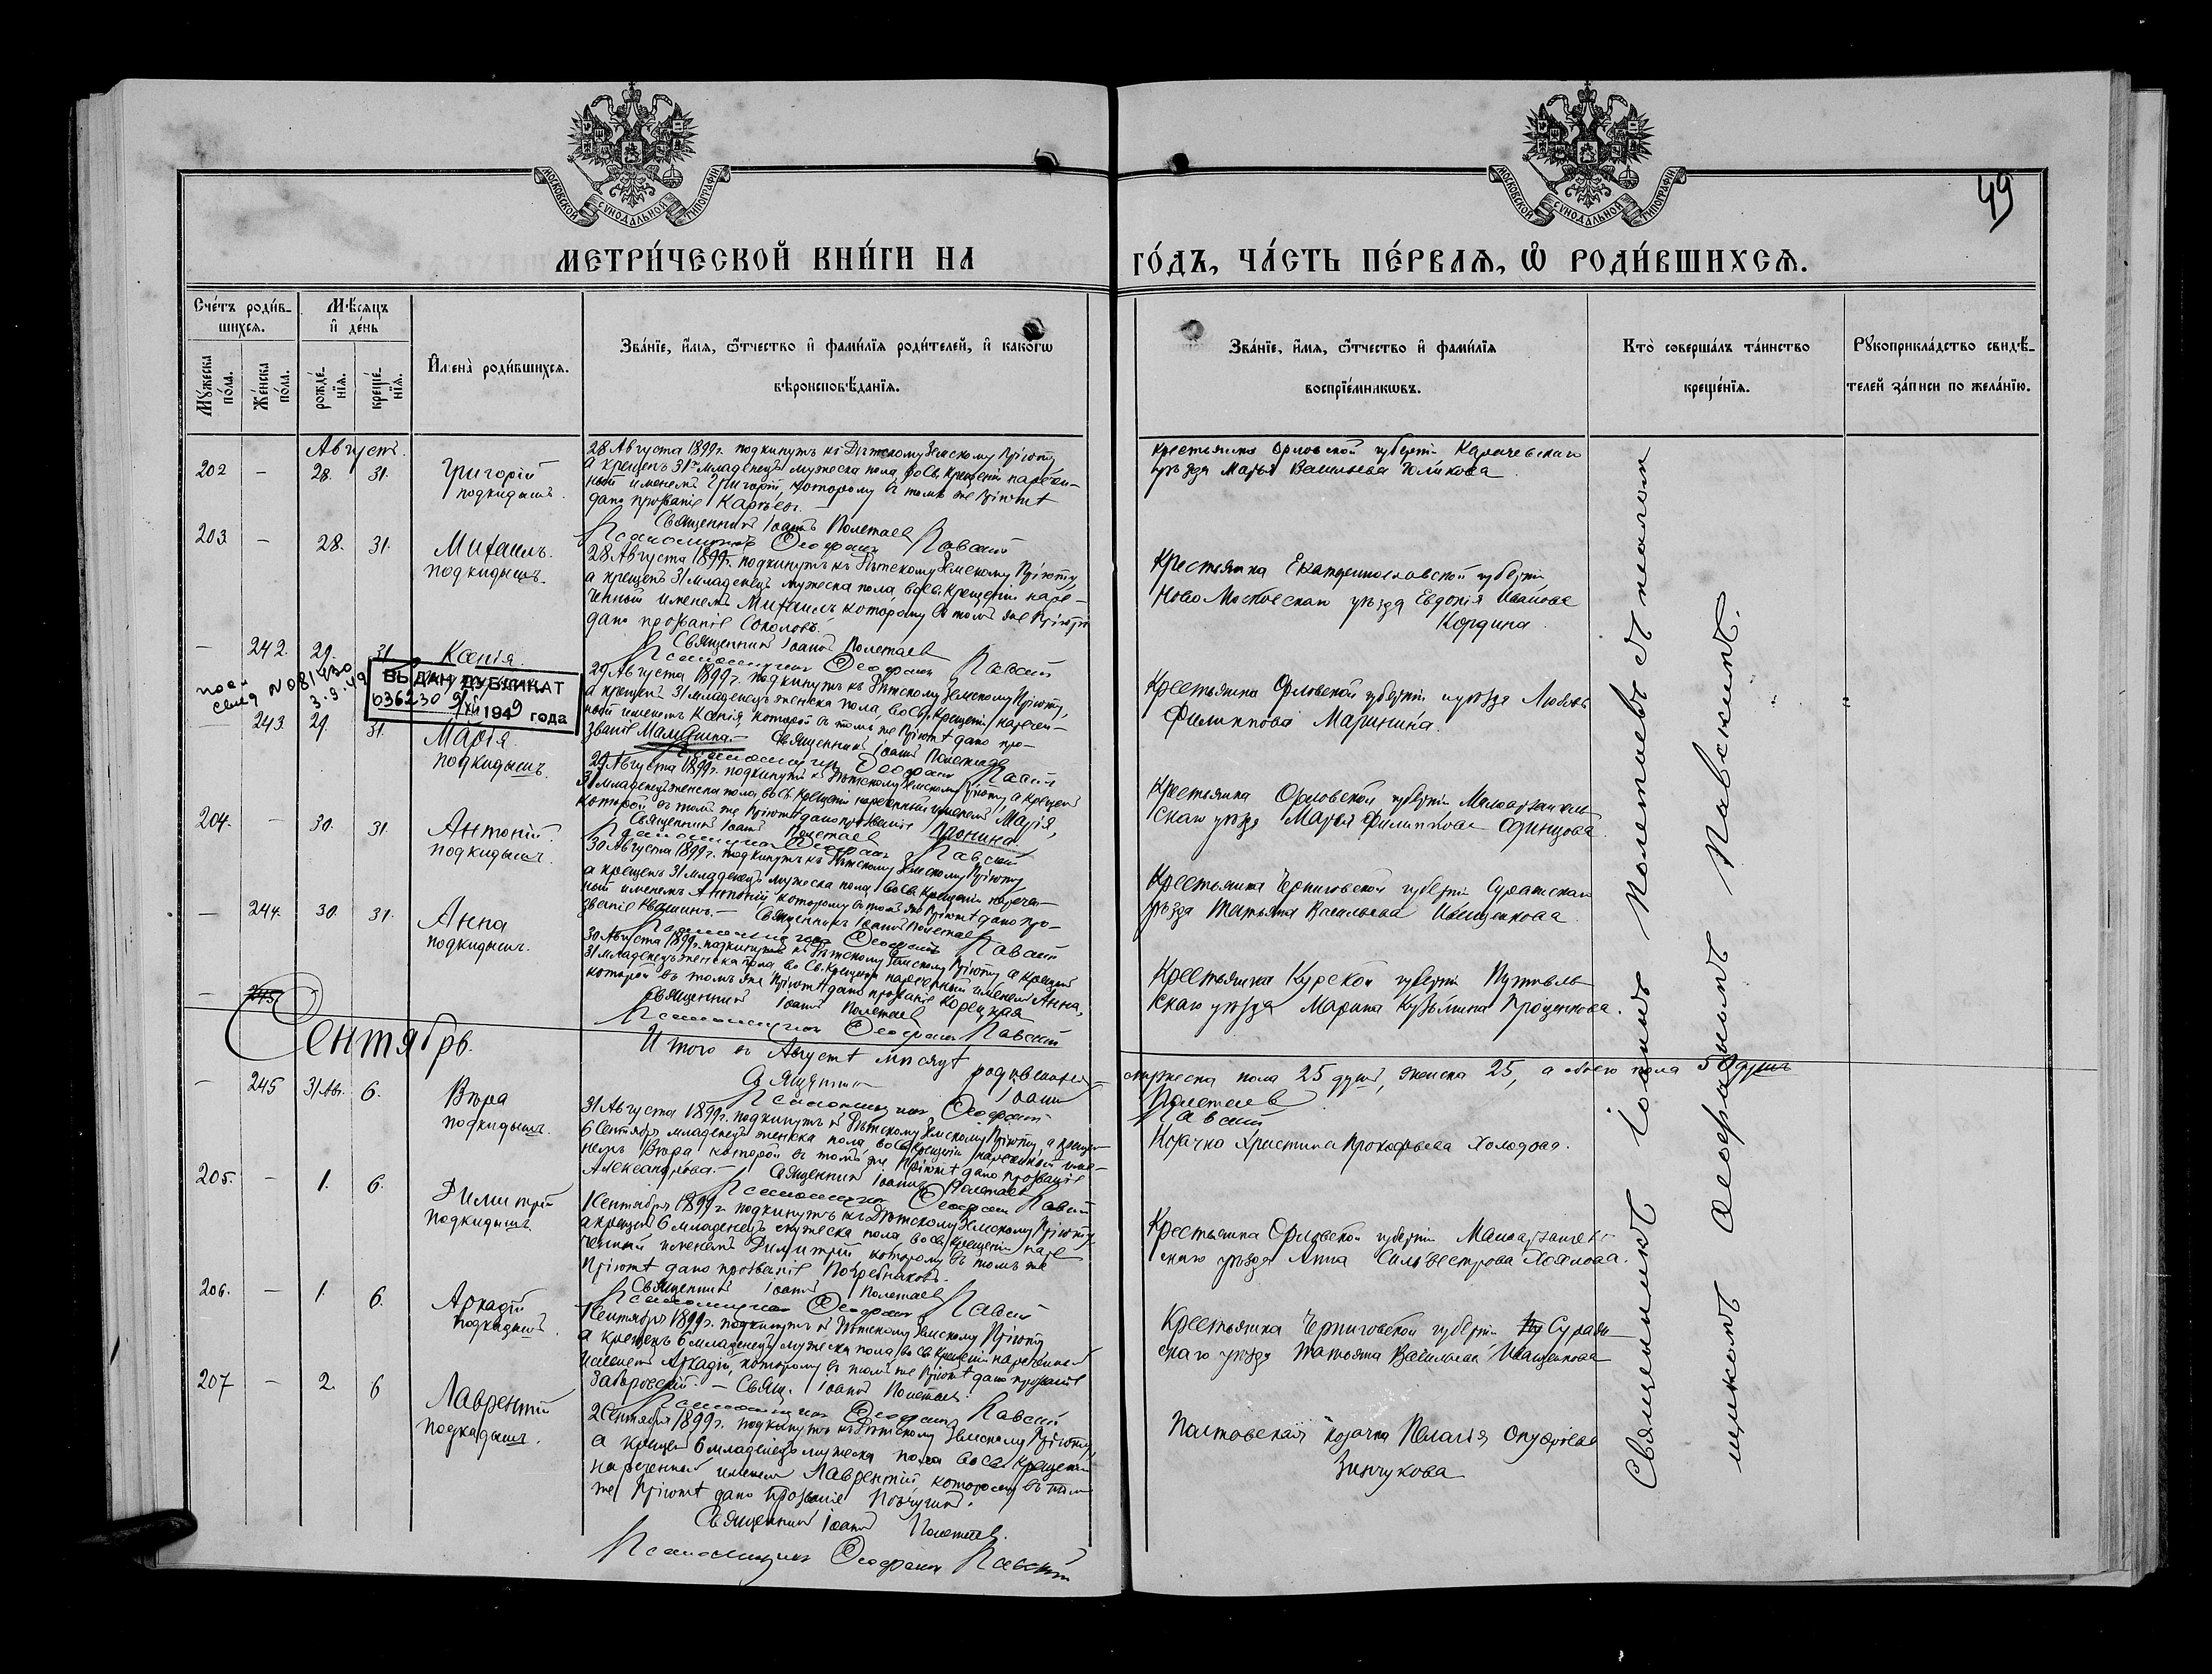 МОСКОВСКОЙ СѴНОДАЛЬНОЙ ТИПОГРАФИИ
МОСКОВСКОЙ СѴНОДАЛЬНОЙ ТИПОГРАФИИ
49
МЕТРИ́ЧЕСКОЙ КНИ́ГИ НА ГО́ДЪ, ЧА́СТЬ ПЕ́РВАѦ, Ѽ РОДИ́ВШИХСѦ.
Сче́тъ роди́в-
шихсѧ.
Мꙋ́жеска по́ла.
Же́нска по́ла.
Мѣ́сѧцъ и҆ де́нь
рожде́-
нїѧ.
креще́-
нїѧ.
И҆мена̀ роди́вшихсѧ.
Зва́нїе, и҆́мѧ, ѻ҆́тчество и҆ фами́лїѧ роди́телей, и҆ како́гѡ
вѣроисповѣ́данїѧ.
Зва́нїе, и҆́мѧ, ѻ҆́тчество и҆ фами́лїѧ
воспрїе́мникѡвъ.
Кто̀ соверша́лъ та́инство
креще́нїѧ.
Рꙋкоприкла́дство свидѣ́-
телей за́писи по жела́нїю.
Августъ.
202 - 28. 31. Григорій
подкидышъ.
28 Августа 1899г. подкинутъ къ Дѣтскому Земскому Пріюту,
а крещенъ 31 младенецъ мужеска пола, во Св. Крещеніи наречен-
ный именемъ Григорій, которому въ томъ же Пріютѣ
дано прозваніе Карпѣевъ.
Священникъ Іоаннъ Полетаевъ
Псаломщикъ Ѳеофанъ Павскій
Крестьянка Орловской губерніи Карачевскаго
уѣзда Марья Васильева Юликова
203 - 28. 31. Михаилъ.
подкидышъ.
28 Августа 1899г. подкинутъ къ Дѣтскому Земскому Пріюту,
а крещенъ 31 младенецъ мужеска пола, во св. Крещеніи наре-
ченный именемъ Михаилъ, которому въ томъ же Пріютѣ
дано прозваніе Соколовъ.
Священникъ Іоаннъ Полетаевъ
Псаломщикъ Ѳеофанъ Павскій
Крестьянка Екатеринославской губерніи
Ново Московскаго уѣзда Евдокія Иванова
Кордина.
- 242. 29. 31. Ксенія.
№ 081430
3.9.49
ВЫДАН ДУБЛИКАТ
036230 9/XII 1949 года
29 Августа 1899г. подкинутъ къ Дѣтскому Земскому Пріюту,
а крещенъ 31 младенецъ женска пола, во св. Крещеніи наречен-
ный именемъ Ксенія, которой въ томъ же Пріютѣ дано про-
званіе Малышина. - Священникъ Іоаннъ Полетаевъ
Псаломщикъ Ѳеофанъ Павскій
Крестьянка Орловской губерніи и уѣзда Любовь
Филиппова Маринина.
- 243. 29. 31. Марія.
подкидышъ.
29 Августа 1899г. подкинутъ къ Дѣтскому Земскому Пріюту, а крещенъ
31 младенецъ женска пола, во св. Крещеніи нареченный именемъ Марія,
которой въ томъ же Пріютѣ дано прозваніе Пронина.
Священникъ Іоаннъ Полетаевъ
Псаломщикъ Ѳеофанъ Павскій
Крестьянка Орловской губерніи Малоархангель-
скаго уѣзда Марья Филиппова Одинцова.
204. - 30. 31. Антоній
подкидышъ.
30 Августа 1899г. подкинутъ къ Дѣтскому Земскому Пріюту
а крещенъ 31 младенецъ мужеска пола, во Св. Крещеніи наречен-
ный именемъ Антоній, которому въ томъ же Пріютѣ дано про-
званіе Квашинъ. - Священникъ Іоаннъ Полетаевъ
Псаломщикъ Ѳеофанъ Павскій
Крестьянка Черниговской губерніи Суражскаго
уѣзда Татьяна Васильева Иващенкова
- 244. 30. 31. Анна
подкидышъ.
30 Августа 1899г. подкинутъ къ Дѣтскому Земскому Пріюту а крещенъ
31 младенецъ женска пола во Св. Крещеніи нареченный именемъ Анна,
которой въ томъ же Пріютѣ дано прозваніе Корецкая
Священникъ Іоаннъ Полетаевъ
Псаломщикъ Ѳеофанъ Павскій
Крестьянка Курской губерніи Путивль-
скаго уѣзда Марина Кузьмина Проценкова.
- 245
Сентябрь.
Итого въ Августѣ мѣсяцѣ родившихся
мужеска пола 25 душъ, женска 25, а обоего пола 50 душъ
Священникъ Іоаннъ Полетаевъ
Псаломщикъ Ѳеофанъ Павскій
- 245 31 Авг. 6. Вѣра
подкидышъ.
31 Августа 1899г. подкинутъ къ Дѣтскому Земскому Пріюту, а крещенъ
6 Сентября младенецъ женска пола, во св. Крещеніи нареченный име-
немъ Вѣра, которой въ томъ же Пріютѣ дано прозваніе
Александрова. - Священникъ Іоаннъ Полетаевъ
Псаломщикъ Ѳеофанъ Павскій
Козачка Христина Прокофьева Холодова.
205. - 1. 6. Димитрій
подкидышъ.
1 Сентября 1899г. подкинутъ къ Дѣтскому Земскому Пріюту,
а крещенъ 6 младенецъ мужеска пола, во св. Крещеніи наре-
ченный именемъ Димитрій, которому въ томъ же
Пріютѣ дано прозваніе Погребняковъ.
Священникъ Іоаннъ Полетаевъ
Псаломщикъ Ѳеофанъ Павскій
Крестьянка Орловской губерніи Малоархангель-
скаго уѣзда Анна Сильвестрова Хохлова.
206. - 1. 6. Аркадій
подкидышъ.
1 Сентября 1899г. подкинутъ къ Дѣтскому Земскому Пріюту
а крещенъ 6 младенецъ мужеска пола, во св. Крещеніи нареченный
именемъ Аркадій, которому въ томъ же Пріютѣ дано прозваніе
Заборовскій. - Свящ. Іоаннъ Полетаевъ.
Псаломщикъ Ѳеофанъ Павскій
Крестьянка Черниговской губерніи Сураж-
скаго уѣзда Татьяна Васильева Иващенкова
207 - 2. 6 Лаврентій
подкидышъ.
2 Сентября 1899г. подкинутъ къ Дѣтскому Земскому Пріюту,
а крещенъ 6 младенецъ мужеска пола во св. Крещеніи
нареченный именемъ Лаврентій, которому въ томъ
же Пріютѣ дано прозваніе
Священникъ Іоаннъ Полетаевъ.
Псаломщикъ Ѳеофанъ Павскій
Полтавская козачка Пелагія Онуфріева
Зинчукова
Священникъ Іоаннъ Полетаевъ съ псалом-
щикомъ Ѳеофаномъ Павскимъ.